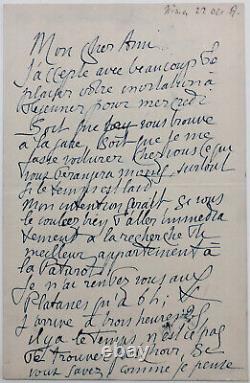 Mon cher Ami
J'accepte avec beaucoup de
plaisir votre invitation à
déjeuner pour mercredi
Soit que vous trouve
à la gare Soit que je me
fasse voiturer chez vous ce qui
vous dérangera moins surtout
si le temps est laid
Mon intention serait si vous
le voulez bien d'aller immédia
tement à la recherche du
meilleur appartement à
la
Je n'ai rendez vous aux
Platanes qu'à 6 h;
J'arrive à trois heures
il y a le temps n'est ce pas
de trouver
vous savez comme je pense
© tsedb